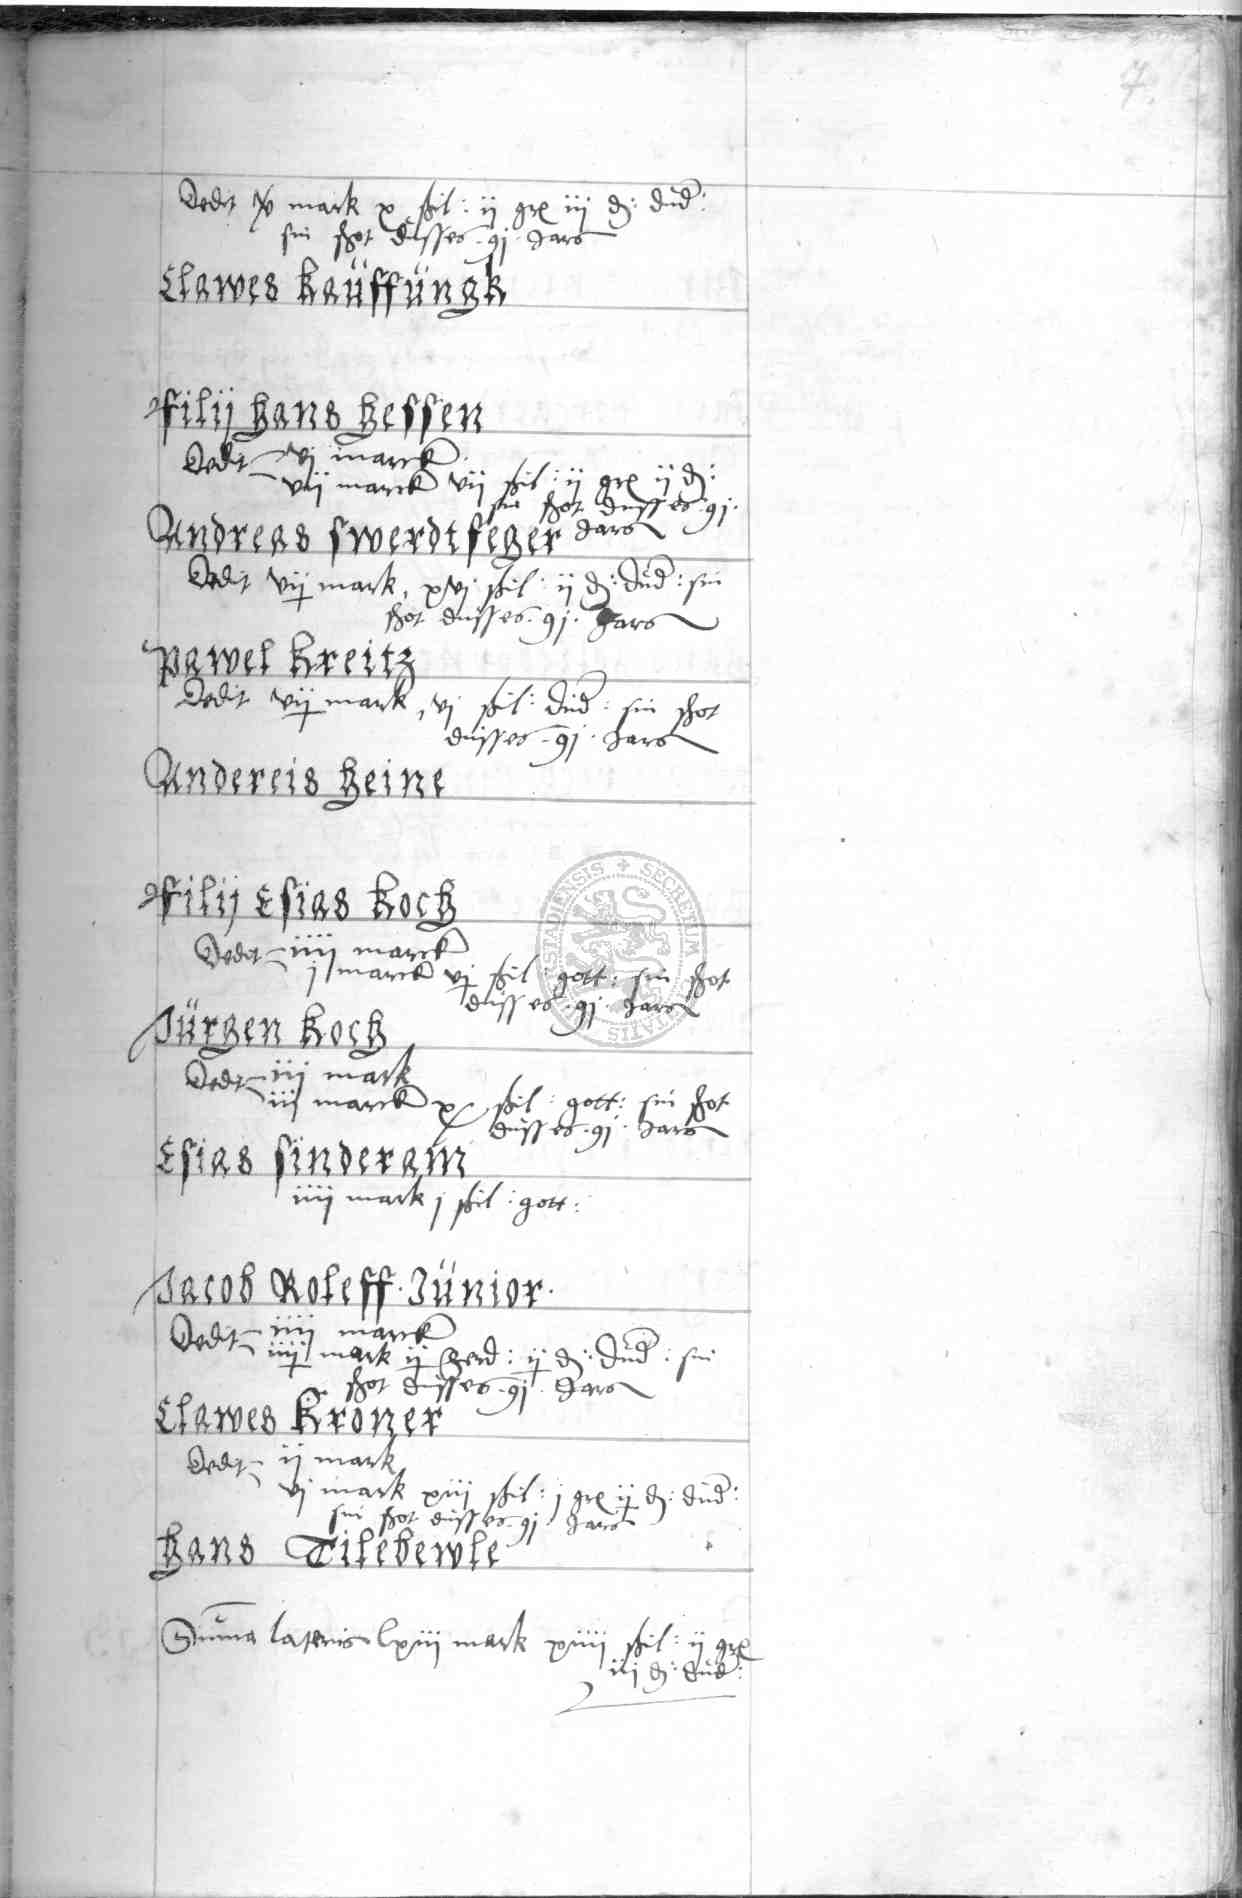 7
Dedit xv mark x ßil : ij grͦ iij ₰ : dud :
sin schot dusses . 91 . Jars
Clawes Kaüffüngk
Filij Hans Hessen
Dedit vj marck
vij marck vij ßil : ij gr ij ₰ :
sin schot dusses . 91 .
Andreas Swerdtfeger Jars
Dedit vij mark , xvj ßil : ij ₰ : dud : sin
schot dusses . 91 . Jars
Pawel Kreitz
Dedit vij mark , vj ßil : dud : sin schot
dusses . 91 . Jars
Andereis Heine
Filij Esias Koch
Dedit iiij marck
j marck vj ßil gott : sin schot
dusses . 91 . Jars
Jürgen Koch
Dedit iij mark
iij marck x ßil : gott : sin schot
dusses . 91 . Jars
Esias Sinderam
iiij mark j ßil : gott :
Jacob Roleff . Jünior .
Dedit iiij marck
iiij mark ij ferd : ij ₰ : dud : sin
schot dusses . 91 . Jars
Clawes Kroner
Dedit ij mark
vj mark xiii ßil : j gr ij ₰ : dud :
sin schot dusses . 91 Jars
Hans Tilebewle
Suma lateris lxiij mark xiiij ßil : ij gr
iij ₰ : dud :
SECRETUM